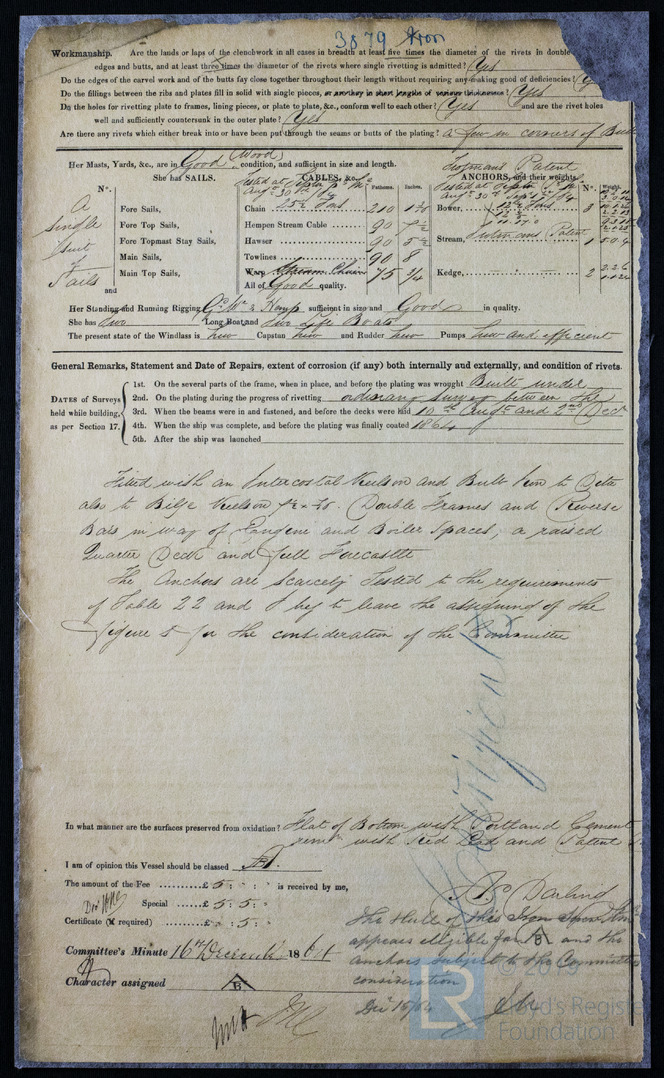 3879 Iron
Workmanship. Are the lands or laps of the clenchwork in all cases in breadth at least five times the diameter of the rivets in double
edges and butts, and at least three times the diameter of the rivets where single rivetting is admitted? Yes
Do the edges of the carvel work and of the butts fay close together throughout their length without requiring any making good of deficiencies?
Do the fillings between the ribs and plates fill in solid with single pieces, or are they in short lengths of various thicknesses? Yes
Do the holes for rivetting plate to frames, lining pieces, or plate to plate, &c., conform well to each other? Yes and are the rivet holes
well and sufficiently countersunk in the outer plate? Yes
Are there any rivets which either break into or have been put through the seams or butts of the plating? a few in corners of Butt
Her Masts, Yards, &c., are in Good (Wood) condition, and sufficient in size and length.
She has SAILS. CABLES, &c. Fathoms. Inches. ANCHORS, and their weights.
Nº. Nº. Weight
A single suit of Sails and
Fore Sails,
Fore Top Sails,
Fore Topmast Stay Sails,
Main Sails,
Main Top Sails,
Chain 25½ Tons 210
Hempen Stream Cable 90 7½
Hawser 90 5½
Towlines 90 8
Warp Stream Chain 75 3/4
All of Good quality.
Trotmans Patent
Bower, 3
Stream, Trotmans Patent 1
Kedge, 2
Her Standing and Running Rigging Hemp sufficient in size and Good in quality.
She has two Long Boat and two Life Boats
The present state of the Windlass is new Capstan new and Rudder new Pumps new and efficient
General Remarks, Statement and Date of Repairs, extent of corrosion (if any) both internally and externally, and condition of rivets.
DATES of Surveys held while building, as per Section 17.
1st. On the several parts of the frame, when in place, and before the plating was wrought Built under
2nd. On the plating during the progress of rivetting ordinary Survey between the
3rd. When the beams were in and fastened, and before the decks were laid 10th Augt and 2nd Decr
4th. When the ship was complete, and before the plating was finally coated 1864
5th. After the ship was launched
Fitted with an Intercostal Keelson and Bulb Iron to Ditto
also to Bilge Keelson. Double Frames and Reverse
Bars in way of Engine and Boiler Spaces; a raised
Quarter Deck and full Forecastle
The Anchors are scarcely Tested to the requirements
of Table 22 and I beg to leave the assigning of the
figure 1 for the consideration of the Committee
In what manner are the surfaces preserved from oxidation? Flat of Bottom with Portland Cement
with Red Lead and Patent
I am of opinion this Vessel should be classed
The amount of the Fee .......... £ 5 : : is received by me,
Special .......... £ 5 : 5 :
Certificate (if required) .......... £ : 5 :
Darling
The Hull of this Iron
appears eligible for B and the
anchors subject to the Committee
consideration
Dec 15/64
Committee's Minute 16th December 1864
Character assigned A B
© 2019
LR
Lloyd's Register
Foundation